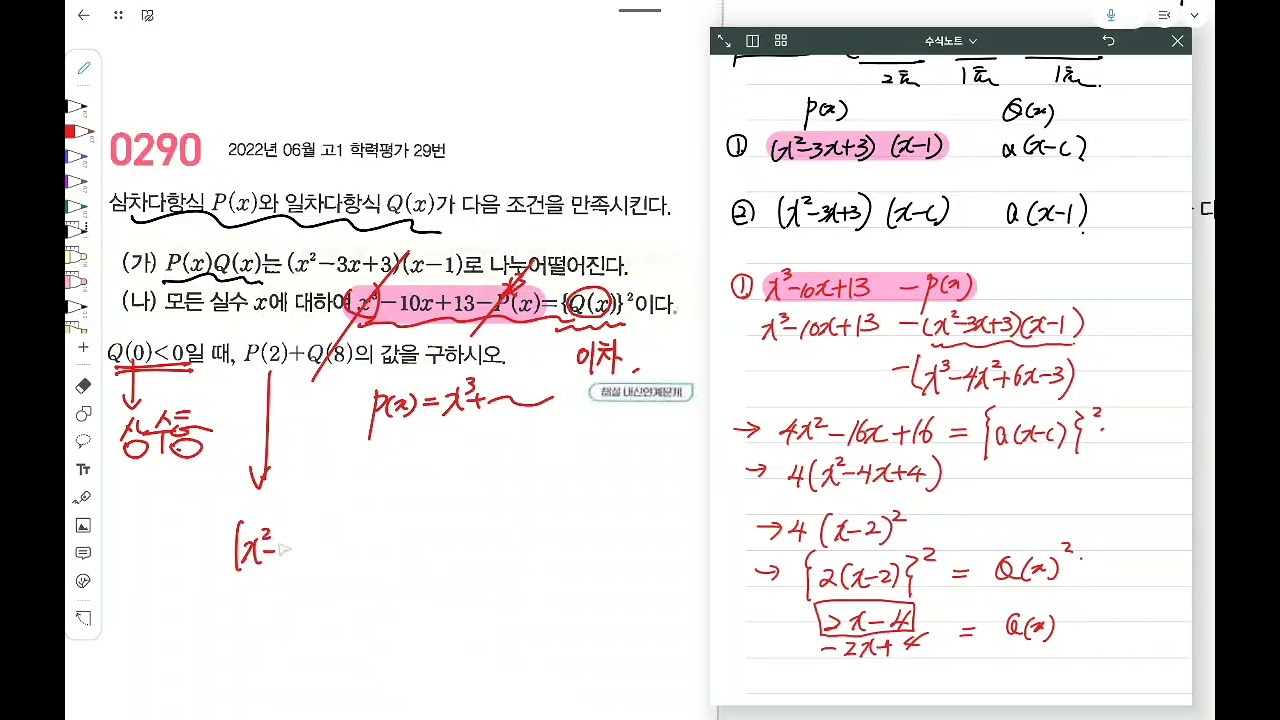 수식노트
2편 1편 1편
P(x) Q(x)
① (x²-3x+3) (x-1) a(x-c)
② (x²-3x+3) (x-c) a(x-1)
① x³-10x+13 - P(x)
x³-10x+13 -(x²-3x+3)(x-1)
-(x³-4x²+6x-3)
→ 4x²-16x+16 = {a(x-c)}²
→ 4(x²-4x+4)
→ 4(x-2)²
→ {2(x-2)}² = Q(x)²
2x-4 = Q(x)
-2x+4
0290 2022년 06월 고1 학력평가 29번
삼차다항식 P(x)와 일차다항식 Q(x)가 다음 조건을 만족시킨다.
(가) P(x)Q(x)는 (x²-3x+3)(x-1)로 나누어떨어진다.
(나) 모든 실수 x에 대하여 x³-10x+13-P(x)={Q(x)}²이다.
Q(0)<0일 때, P(2)+Q(8)의 값을 구하시오.
이차
해설 내신연계문제
P(x)=x³+
상수
(x²-
Tт